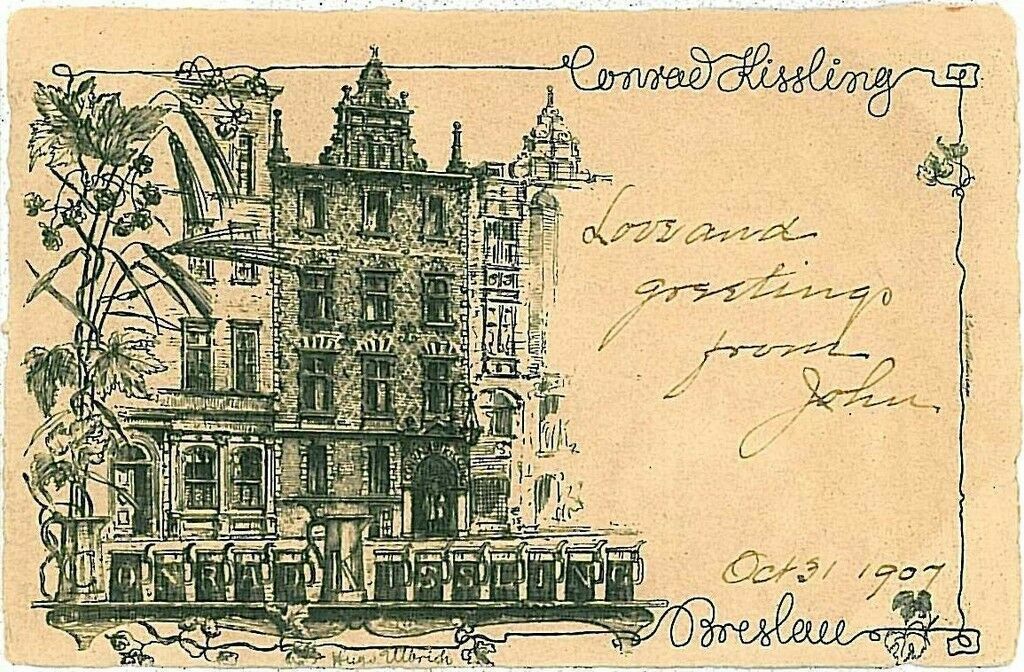 Conrad Kissling
Love and
greetings
from
John
Oct 31 1907
CONRAD KISSLING
Breslau
Hugo Ulbrich